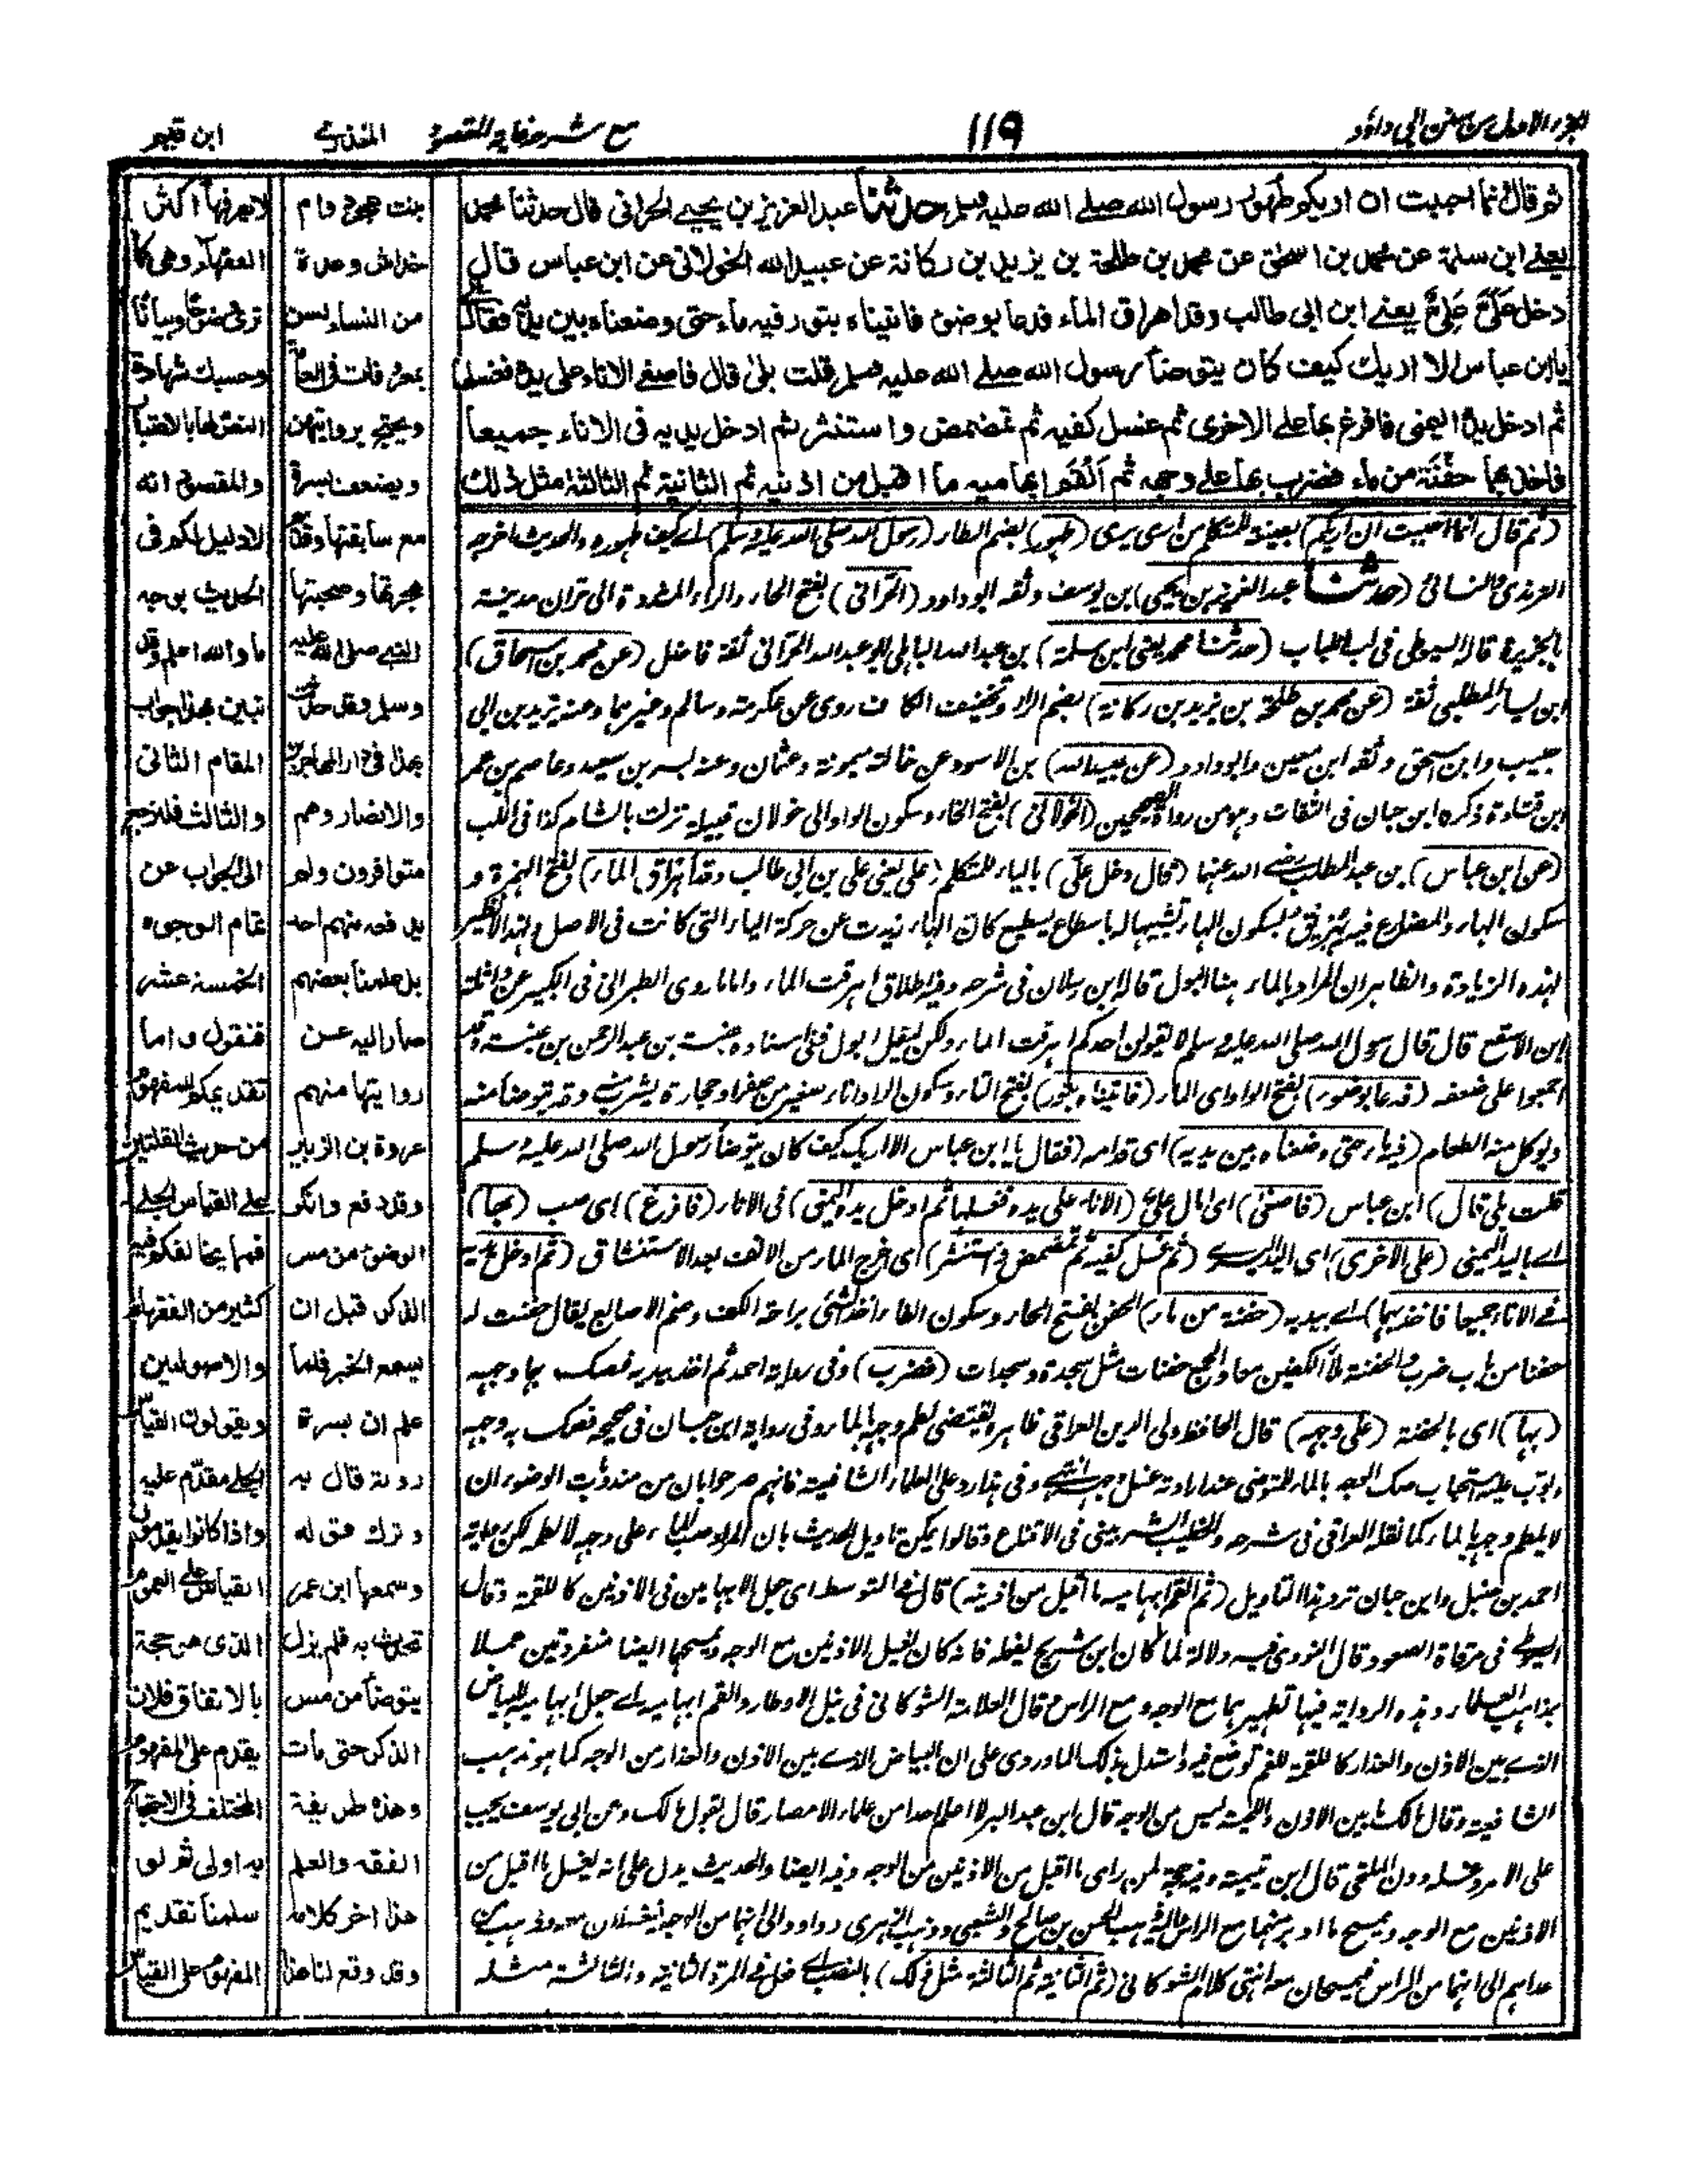 الجزء الاول من سنن ابی داؤد
١١٩
مع شرح غاية المقصود
المنذری
ابن قيم
ثم قال انما احببت ان اريكم طهور رسول الله صلے الله عليه وسلم حدثنا عبد العزيز بن يحيے الحرانی قال حدثنا محمد
يعنے ابن سلمة عن محمد بن اسحٰق عن محمد بن طلحة بن يزيد بن ركانة عن عبيد الله الخولانی عن ابن عباس قال
دخل عَلَیَّ عَلِیٌّ يعنے ابن ابی طالب وقد اهراق الماء فدعا بوضوء فاتيناه بتور فيه ماء حتى وضعناه بين يديه فقال
يا ابن عباس الا اريك كيف كان يتوضأ رسول الله صلے الله عليه وسلم قلت بلىٰ قال فاصغى الاناء على يده فغسلها
ثم ادخل يده اليمنى فافرغ بها على الاخرى ثم غسل كفيه ثم تمضمض واستنثر ثم ادخل يديه فى الاناء جميعاً
فاخذ بهما حفنة من ماء فضرب بها على وجهه ثم اَلْقَمَ ابهاميه ما اقبل من اذنيه ثم الثانية ثم الثالثة مثل ذلك
(ثم قال انما احببت ان اريكم) بصيغة المتكلم من اری يری (طهور) بضم الطاء (رسول الله صلى الله عليه وسلم) اے كيف طهوره والحديث اخرجه
الترمذی والنسائی (حدثنا عبد العزيز بن يحيى) بن يوسف وثقه ابو داود (الحرانی) بفتح الحاء والراء المشددة الى حران مدينة
بالجزيرة قاله السيوطی فى لب اللباب (حدثنا محمد يعنى ابن سلمة) بن عبد الله الباهلی ابو عبد الله الحرانی ثقة فاضل (عن محمد بن اسحاق)
ابن يسار المطلبی ثقة (عن محمد بن طلحة بن يزيد بن ركانة) بضم الراء وتخفيف الكاف روى عن عكرمة وسالم وغيرهما وعنه يزيد بن ابی
حبيب وابن اسحق وثقه ابن معين وابو داود (عن عبيد الله) بن الاسود عن خالته ميمونة وعثمان وعنه بسر بن سعيد وعاصم بن عمر
ابن قتادة ذكره ابن حبان فى الثقات وهو من رواة الصحيحين (الخولانی) بفتح الخاء وسكون الواو الى خولان قبيلة نزلت بالشام كذا فى اللب
(عن ابن عباس) بن عبد المطلب رضے الله عنهما (قال دخل علی) بالياء للمتكلم (علی يعنى علی بن ابی طالب وقد اهراق الماء) بفتح الهمزة و
سكون الهاء والمضارع فيه يُهْرِيقُ بسكون الهاء تشبيها له باسطاع يسطيع كان الهاء زيدت عن حركة الياء التی كانت فى الاصل ولهذا لا نظير
لهذه الزيادة والظاهر ان المراد بالماء هنا البول قاله ابن رسلان فى شرحه وفيه اطلاق اهرقت الماء واما ما روى الطبرانی فى الكبير عن واثلة
ابن الاسقع قال قال رسول الله صلى الله عليه وسلم لا يقولن احدكم اهرقت الماء ولكن ليقل ابول ففی اسناده عنبسة بن عبد الرحمن بن عنبسة وقد
اجمعوا على ضعفه (فدعا بوضوء) بفتح الواو ای الماء (فاتيناه بتور) بفتح التاء وسكون الواو اناء صغير من صفر او حجارة يشرب منه وقد يتوضأ منه
ويؤكل منه الطعام (فيه ماء حتى وضعناه بين يديه) ای قدامه (فقال يا ابن عباس الا اريك كيف كان يتوضأ رسول الله صلى الله عليه وسلم
قلت بلى قال) ابن عباس (فاصغى) ای امال علیؓ (الاناء على يده فغسلها ثم ادخل يده اليمنى) فى الاناء (فافرغ) ای صب (بها)
اے باليد اليمنى (على الاخرى) ای اليد اليسرے (ثم غسل كفيه ثم تمضمض واستنثر) ای اخرج الماء من الانف بعد الاستنشاق (ثم ادخل يديه
فى الاناء جميعا فاخذ بهما) اے بيديه (حفنة من ماء) الحفن بفتح الحاء وسكون الفاء اخذ الشئ براحة الكف وضم الاصابع يقال حفنت له
حفنا من باب ضرب والحفنة ملأ الكفين معا والجمع حفنات مثل سجدة وسجدات (فضرب) وفی رواية احمد ثم اخذ بيديه فصك بهما وجهه
(بها) ای بالحفنة (على وجهه) قال الحافظ ولی الدين العراقی ظاهره يقتضی لطم وجهه بالماء وفی رواية ابن حبان فى صحيحه فصك به وجهه
وبوب عليه استحباب صك الوجه بالماء للمتوضی عند ارادته غسل وجهه انتهے وفی هذا رد على العلماء الشافعية فانهم صرحوا بان من مندوبات الوضوء ان
لا يلطم وجهه بالماء كما نقله العراقی فى شرحه والخطيب الشربينی فى الاقناع وقالوا يمكن تاويل الحديث بان المراد صب الماء على وجهه لا لطمه لكن رواية
احمد بن حنبل وابن حبان ترد هذا التاويل (ثم القم ابهاميه ما اقبل من اذنيه) قال فى التوسط ای جعل الابهامين فى الاذنين كاللقمة وقال
السيوطے فى مرقاة الصعود قال النووی فيه دلالة لما كان ابن شريح يفعله فانه كان يغسل الاذنين مع الوجه ويمسحهما ايضا منفردتين عملا
بمذاهب العلماء وهذه الرواية فيها تطهيرهما مع الوجه ومع الراس قال العلامة الشوكانی فى نيل الاوطار والقم ابهاميه اے جعل ابهاميه للبياض
الذے بين الاذن والعذار كاللقمة للفم توضع فيه واستدل بذلك الماوردی على ان البياض الذے بين الاذن والعذار من الوجه كما هو مذهب
الشافعية وقال مالك ما بين الاذن واللحية ليس من الوجه قال ابن عبد البر لا اعلم احدا من علماء الامصار قال بقول مالك وعن ابی يوسف يجب
على الامرد غسله دون الملتحی قال ابن تيمية وفيه حجة لمن رای ما اقبل من الاذنين من الوجه وفيه ايضا والحديث يدل على انه يغسل ما اقبل من
الاذنين مع الوجه ويمسح ما ادبر منهما مع الراس واليه ذهب الحسن بن صالح والشعبی وذهب الزهری وداود الى انهما من الوجه فيغسلان معه وذهب من
عداهم الى انهما من الراس فيمسحان معه انتهى كلام الشوكانی (ثم الثانية ثم الثالثة مثل ذلك) بالنصب اے فعل فى المرة الثانية والثالثة مثله
بنت جحوح وام
خداش وعدة
من النساء لسن
بمعروفات فى العامة
ويحتج بروايتهن
ويضعف بسرة
مع سابقتها وقديم
هجرتها وصحبتها
النبے صلى الله عليه
وسلم وقد حدثت
بهذا فى دار المهاجرين
والانصار وهم
متوافرون ولم
يدفعه منهم احد
بل علمنا بعضهم
صار اليه عن
روايتها منهم
عروة بن الزبير
وقد دفع وانكر
الوضوء من مس
الذكر قبل ان
يسمع الخبر فلما
علم ان بسرة
روته قال به
وترك قوله
وسمعها ابن عمر
تحدث به فلم يزل
يتوضأ من مس
الذكر حتى مات
وهذه طريقة
الفقه والعلم
هذا اخر كلامه
وقد وقع لنا هذا
لا يعرفها اكثر
الفقهاء وهى كما
ترى وضوحا وبيانا
وحسبك شهادة
والمقصود انه
لا دليل لكم فى
الحديث بوجه
ما والله اعلم وقد
تبين بهذا جواب
المقام الثانى
والثالث فلنرجع
الى الجواب عن
تمام الوجوه
الخمسة عشر
فنقول واما
تقديمكم للمفهوم
من حديث القلتين
على القياس الجلے
فمما يخالفكم فيه
كثير من الفقهاء
والاصوليين
ويقولون القياس
الجلے مقدم عليه
واذا كانوا يقدمون
القياس على العموم
الذى هو حجة
بالاتفاق فلان
يقدم على المفهوم
المختلف فى الاحتجاج
به اولى ثم لو
سلمنا تقديم
المفهوم على القياس